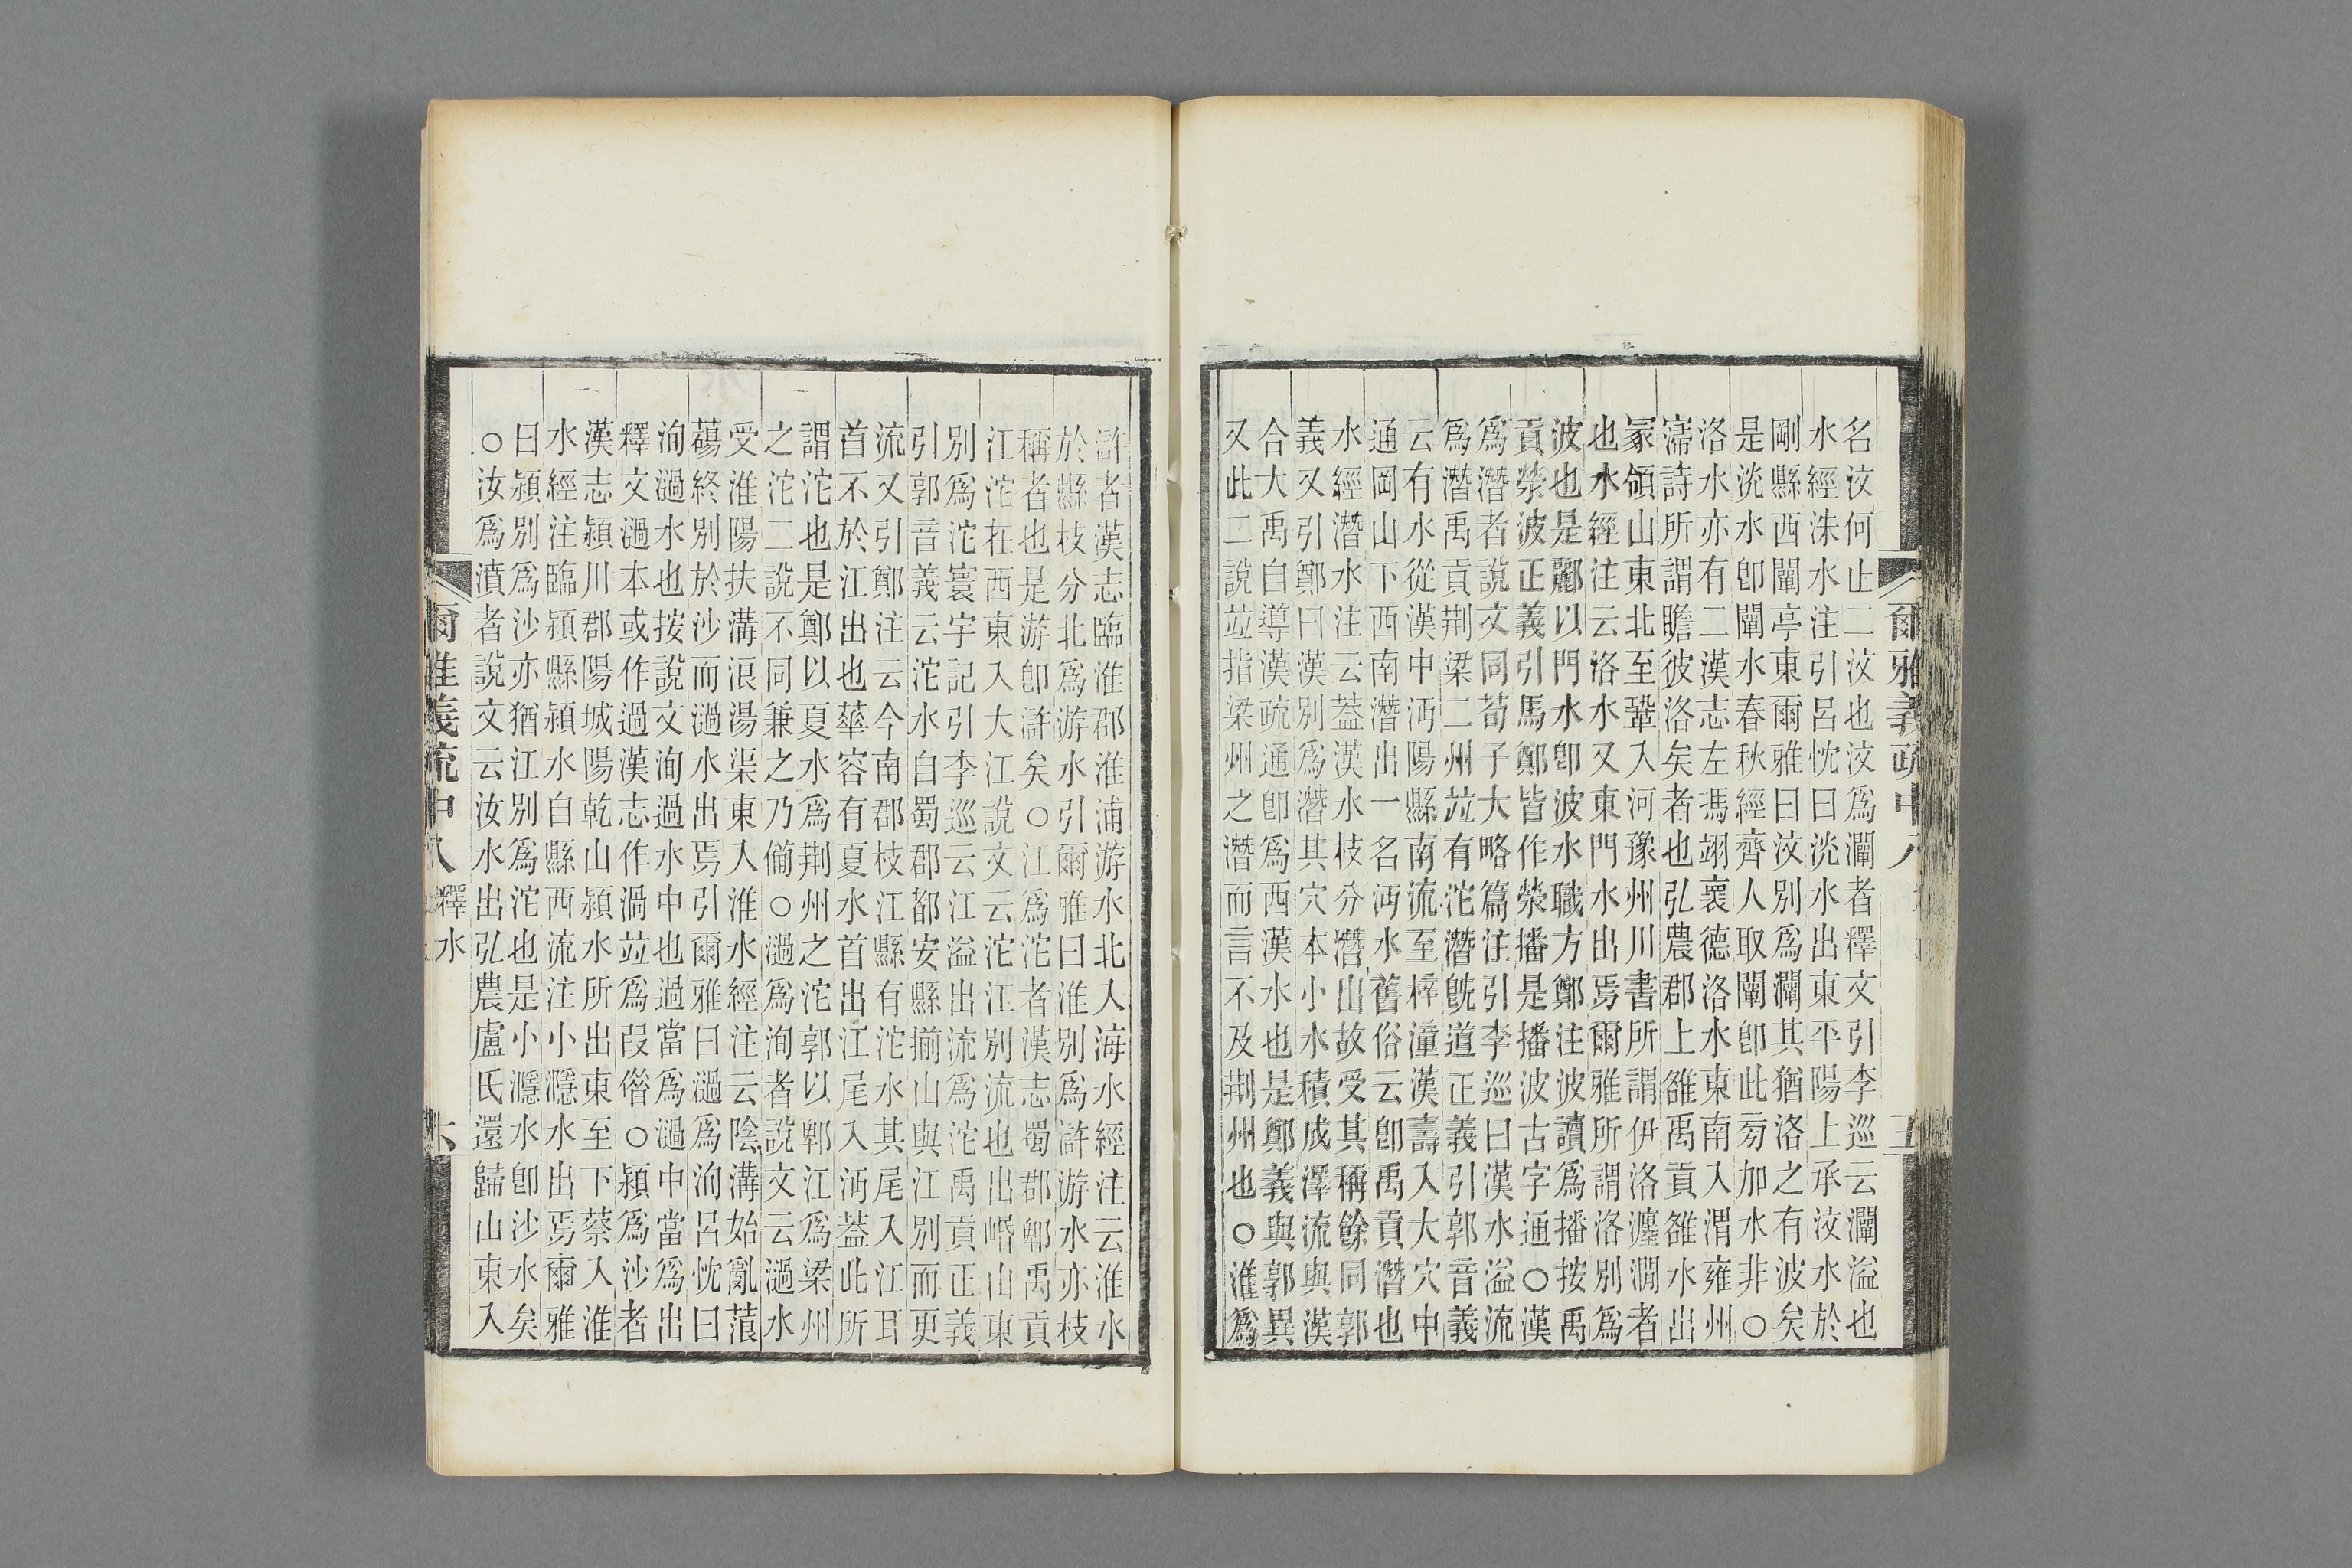 名汶何止二汶也汶爲灛者釋文引李巡云灛溢也
水經洙水注引呂忱曰洸水出東平陽上承汶水於
剛縣西闡亭東爾雅曰汶別爲灛其猶洛之有波矣
是洸水卽闡水春秋經齊人取闡卽此旁加水非○
洛水亦有二漢志左馮翊襃德洛水東南入渭雍州
㴒詩所謂瞻彼洛矣者也弘農郡上雒禹貢雒水出
冢領山東北至鞏入河豫州川書所謂伊洛瀍澗者
也水經注云洛水又東門水出焉爾雅所謂洛別爲
波也是酈以門水卽波水職方鄭注波讀爲播按禹
貢滎波正義引馬鄭皆作滎播是播波古字通○漢
爲潛者說文同荀子大略篇注引李巡曰漢水溢流
爲潛禹貢荆梁二州竝有沱潛旣道正義引郭音義
云有水從漢中沔陽縣南流至梓潼漢壽入大穴中
通岡山下西南潛出一名沔水舊俗云卽禹貢潛也
水經潛水注云葢漢水枝分潛出故受其稱餘同郭
義又引鄭曰漢別爲潛其穴本小水積成澤流與漢
合大禹自導漢疏通卽爲西漢水也是鄭義與郭異
又此二說竝指梁州之潛而言不及荆州也○淮爲
爾雅義疏中八
滸者漢志臨淮郡淮浦游水北入海水經注云淮水
於縣枝分北爲游水引爾雅曰淮別爲滸游水亦枝
稱者也是游卽滸矣○江爲沱者漢志蜀郡郫禹貢
江沱在西東入大江說文云沱江別流也出崏山東
別爲沱寰宇記引李巡云江溢出流爲沱禹貢正義
引郭音義云沱水自蜀郡都安縣揃山與江別而更
流又引鄭注云今南郡枝江縣有沱水其尾入江耳
首不於江出也華容有夏水首出江尾入沔葢此所
謂沱也是鄭以夏水爲荆州之沱郭以郫江爲梁州
之沱二說不同兼之乃備○濄爲洵者說文云濄水
受淮陽扶溝浪湯渠東入淮水經注云陰溝始亂蒗
蕩終別於沙而濄水出焉引爾雅曰濄爲洵呂忱曰
洵濄水也按說文洵過水中也過當爲濄中當爲出
釋文濄本或作過漢志作渦竝爲叚借○潁爲沙者
漢志潁川郡陽城陽乾山潁水所出東至下蔡入淮
水經注臨潁縣潁水自縣西流注小㶏水出焉爾雅
曰潁別爲沙亦猶江別爲沱也是小㶏水卽沙水矣
○汝爲濆者說文云汝水出弘農盧氏還歸山東入
爾雅義疏中八 釋水